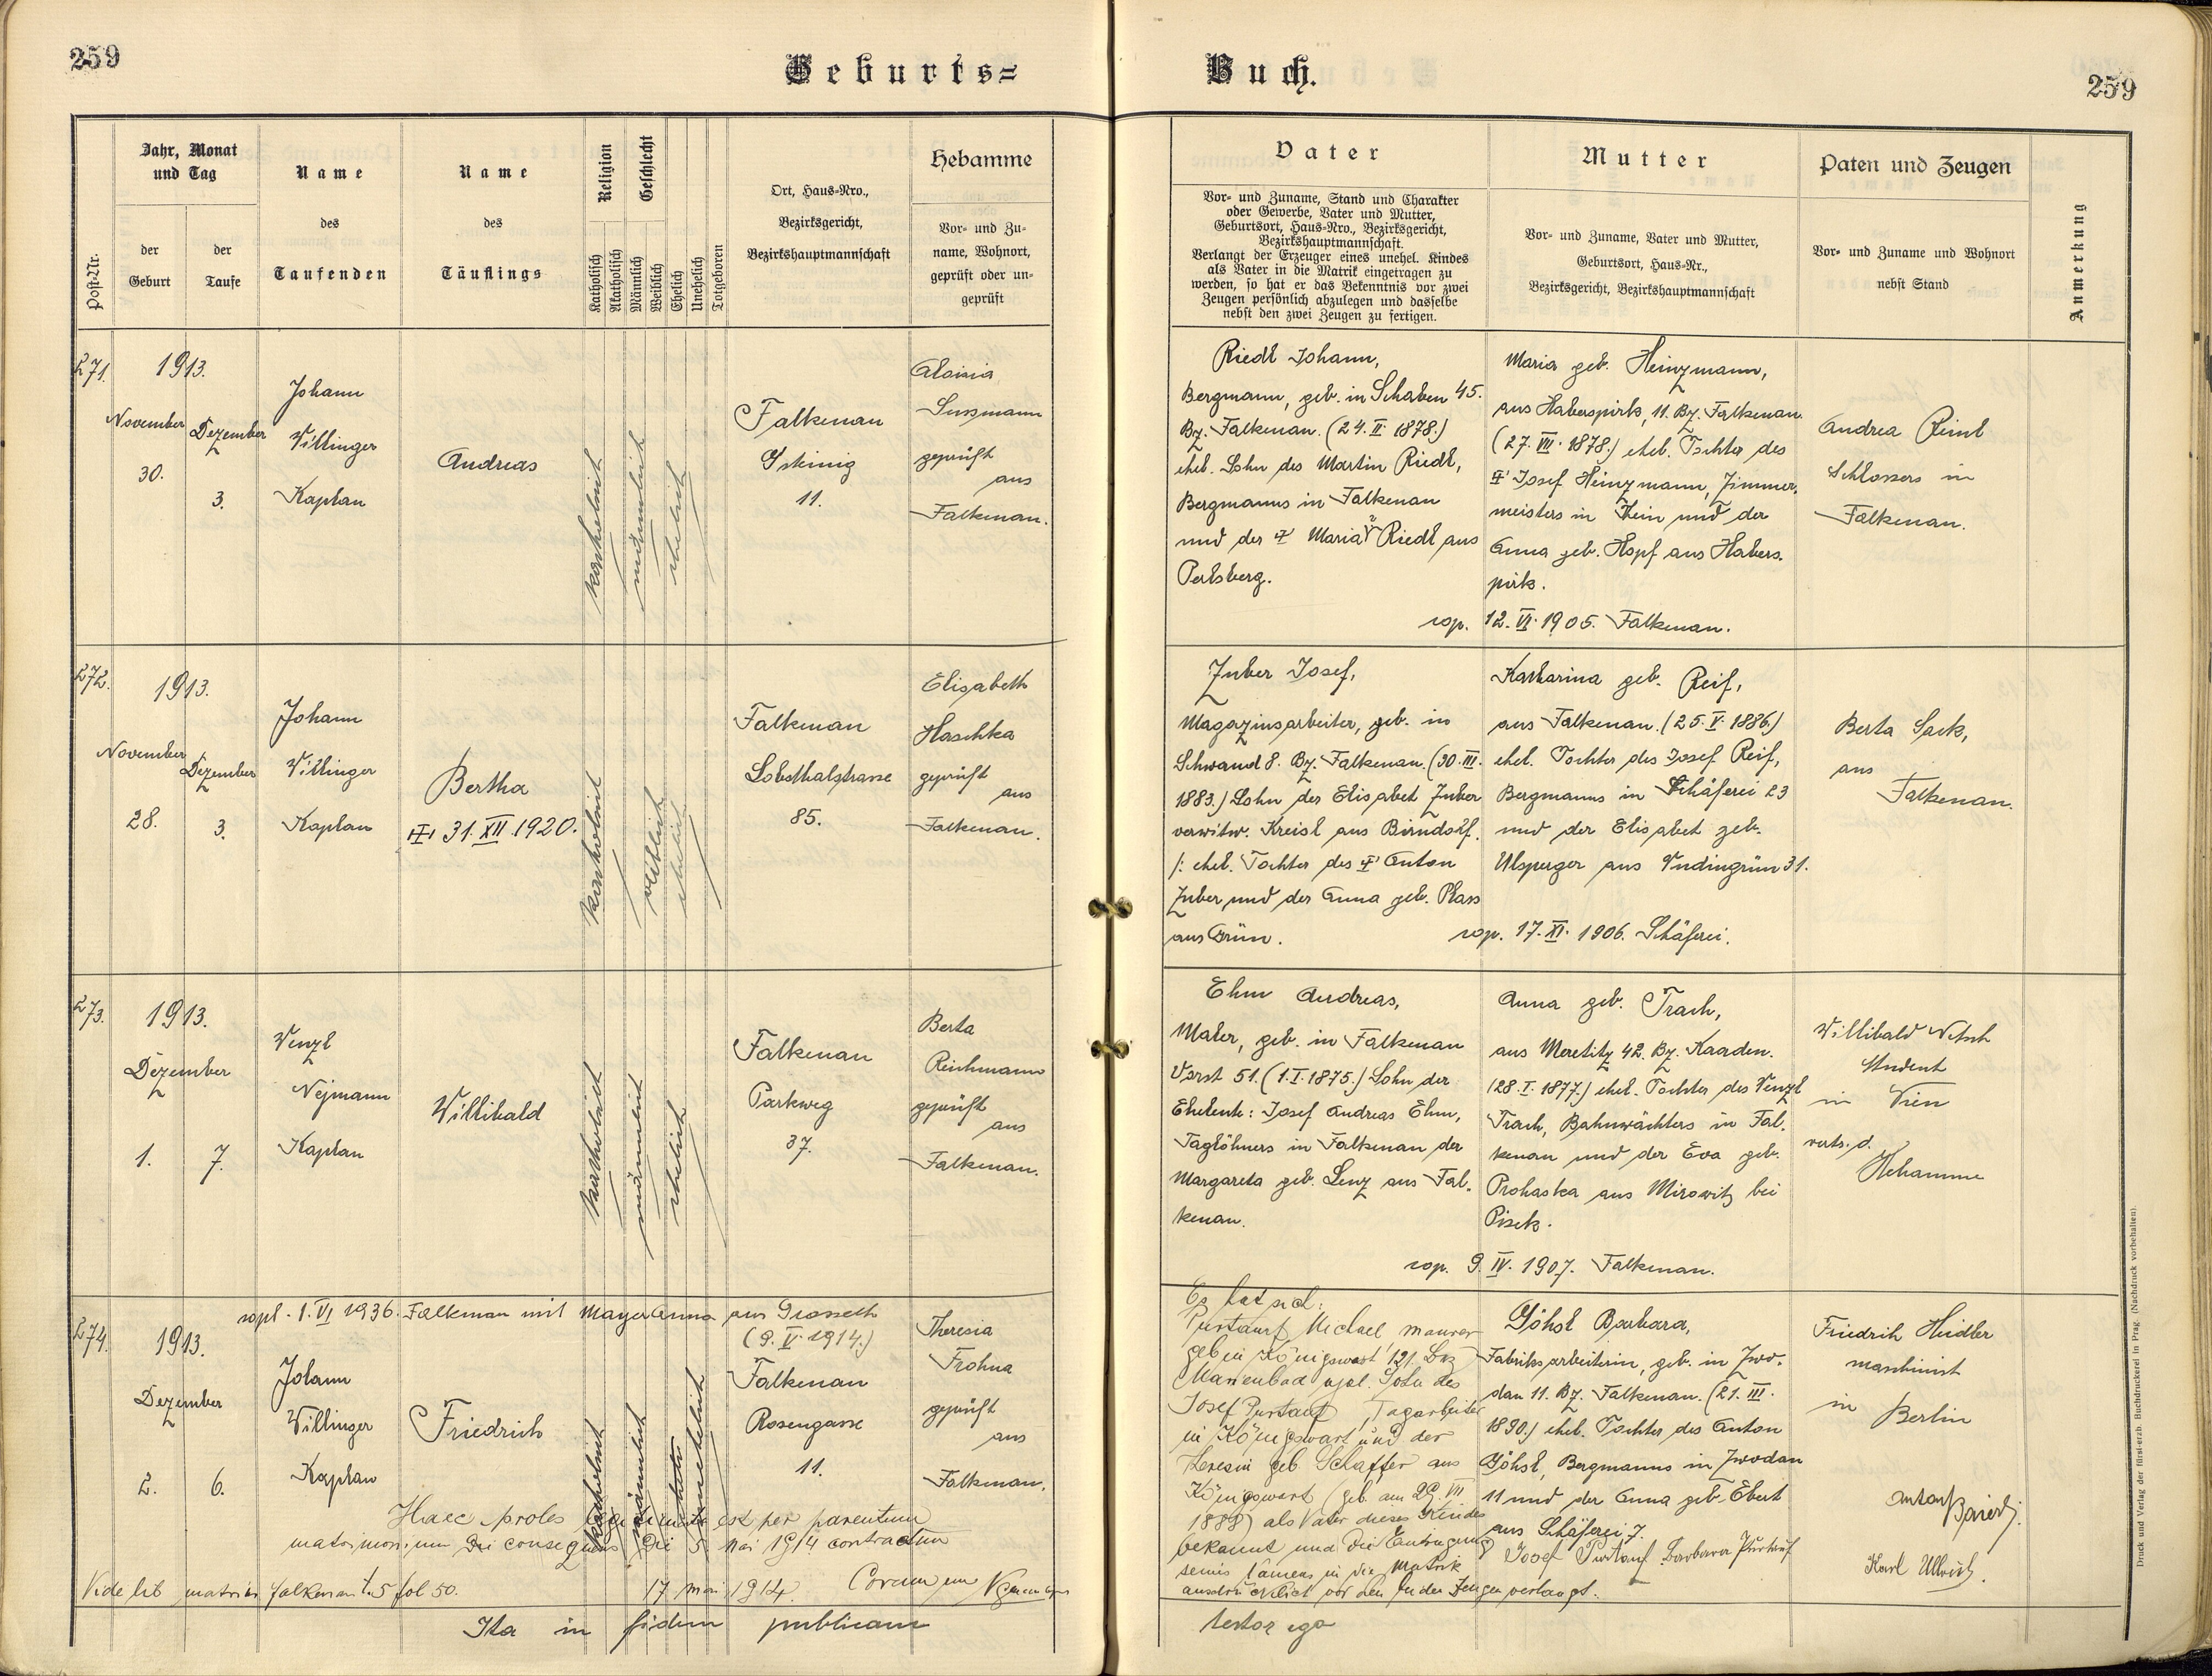 259
Geburts=
Buch.
259
Post-Nr.
Jahr, Monat
und Tag
der
Geburt
der
Taufe
Name
des
Taufenden
Name
des
Täuflings
Religion
Katholisch
Akatholisch
Geschlecht
Männlich
Weiblich
Ehelich
Unehelich
Totgeboren
Ort, Haus-Nro.,
Bezirksgericht,
Bezirkshauptmannschaft
Hebamme
Vor- und Zu-
name, Wohnort,
geprüft oder un-
geprüft
Vater
Vor- und Zuname, Stand und Charakter
oder Gewerbe, Vater und Mutter,
Geburtsort, Haus-Nro., Bezirksgericht,
Bezirkshauptmannschaft.
Verlangt der Erzeuger eines unehel. Kindes
als Vater in die Matrik eingetragen zu
werden, so hat er das Bekenntnis vor zwei
Zeugen persönlich abzulegen und dasselbe
nebst den zwei Zeugen zu fertigen.
Mutter
Vor- und Zuname, Vater und Mutter,
Geburtsort, Haus-Nr.,
Bezirksgericht, Bezirkshauptmannschaft
Paten und Zeugen
Vor- und Zuname und Wohnort
nebst Stand
Anmerkung
271.
1913.
November
30.
Dezember
3.
Johann
Willinger
Kaplan
Andreas
katholisch
männlich
ehelich
Falkenau
11.
Aloisia
Sussmann
geprüft
aus
Falkenau.
Riedl Johann,
Bergmann, geb. in Schaben 45.
Bz. Falkenau. (24. II. 1878.)
ehel. Sohn des Martin Riedl,
Bergmanns in Falkenau
und der Maria Riedl aus
Perlsberg.
Maria geb. Heinzmann,
aus Haberspirk, 11. Bz. Falkenau.
(27. VII. 1878.) ehel. Tochter des
Josef Heinzmann, Zimmer-
meisters in und der
Anna geb. Hopf aus Habers-
pirk.
cop. 12. VI. 1905. Falkenau.
Andrea Reinl
Schlossers in
Falkenau.
272.
1913.
November
28.
Dezember
3.
Johann
Willinger
Kaplan
Bertha
31. XII. 1920.
katholisch
weiblich
ehelich
Falkenau
Lobsthalstrasse
85.
Elisabeth
Haschka
geprüft
aus
Falkenau.
Zuber Josef,
Magazinsarbeiter, geb. in
Schwand 8. Bz. Falkenau. (30. III.
1883.) Sohn der Elisabet Zuber
verwitw. Kreisl aus Birndorf.
/: ehel. Tochter des Anton
Zuber und der Anna geb. Plass
aus Grün.
Katharina geb. Reif,
aus Falkenau. (25. V. 1886)
ehel. Tochter des Josef Reif,
Bergmanns in Schäferei 23
und der Elisabet geb.
Ulsperger aus Wudingrün 31.
cop. 17. XI. 1906. Schäferei.
Berta Sack,
aus
Falkenau.
273.
1913.
Dezember
1.
7.
Wenzl
Nejmann
Kaplan
Willibald
katholisch
männlich
ehelich
Falkenau
Parkweg
37.
Berta
Reichmann
geprüft
aus
Falkenau.
Ehm Andreas,
Maler, geb. in Falkenau
Vorst 51. (1. I. 1875.) Sohn der
Eheleute: Josef Andreas Ehm,
Taglöhners in Falkenau der
Margareta geb. Lenz aus Fal-
kenau.
Anna geb. Trach,
aus Meretitz 42. Bz. Kaaden.
(28. I. 1877.) ehel. Tochter des Wenzl
Trach, Bahnwächters in Fal-
kenau und der Eva geb.
Prohaska aus Mirowitz bei
Pisek.
cop. 9. IV. 1907. Falkenau.
Willibald
Student
in Wien
vertr. d.
Hebamme
274.
copl. 1. VI 1936. Falkenau mit Mayer Anna aus Grasseth
(9. V. 1914.)
1913.
Dezember
2.
6.
Johann
Willinger
Kaplan
Friedrich
katholisch
männlich
Falkenau
Rosengasse
11.
Theresia
Frohna
geprüft
aus
Falkenau.
Es hat sich:
Purtauf Michael Maurer
geb in Königswart 121. Bez
Marienbad ehel. Sohn des
Josef Purtauf, Tagarbeiter
in Königswart und der
Theresia geb Schaffer aus
Königswart (geb. am 29. VII
1888) als Vater dieses Kindes
bekannt und die Eintragung
seines Namens in die Matrik
ausdrücklich vor den beiden Zeugen verlangt.
Göhsl Barbara,
Fabriksarbeiterin, geb. in Zwo-
dau 11. Bz. Falkenau. (21. III.
1890.) ehel. Tochter des Anton
Göhsl, Bergmanns in Zwodau
11 und der Anna geb. Ebert
aus Schäferei 7.
Josef Purtauf Barbara Purtauf
Friedrich Heidler
Maschinist
in
Berlin
Anton
Karl Ullrich.
Haec proles legitimata est per parentum
matrimonium consequens die 5 Mai 1914 contractum
Vide lib matrim Falkenau t. 5 fol 50.
17 Mai 1914. Coram me
Ita in fidem publicam
testor ego
Druck und Verlag der fürst-erzb. Buchdruckerei in Prag. (Nachdruck vorbehalten).